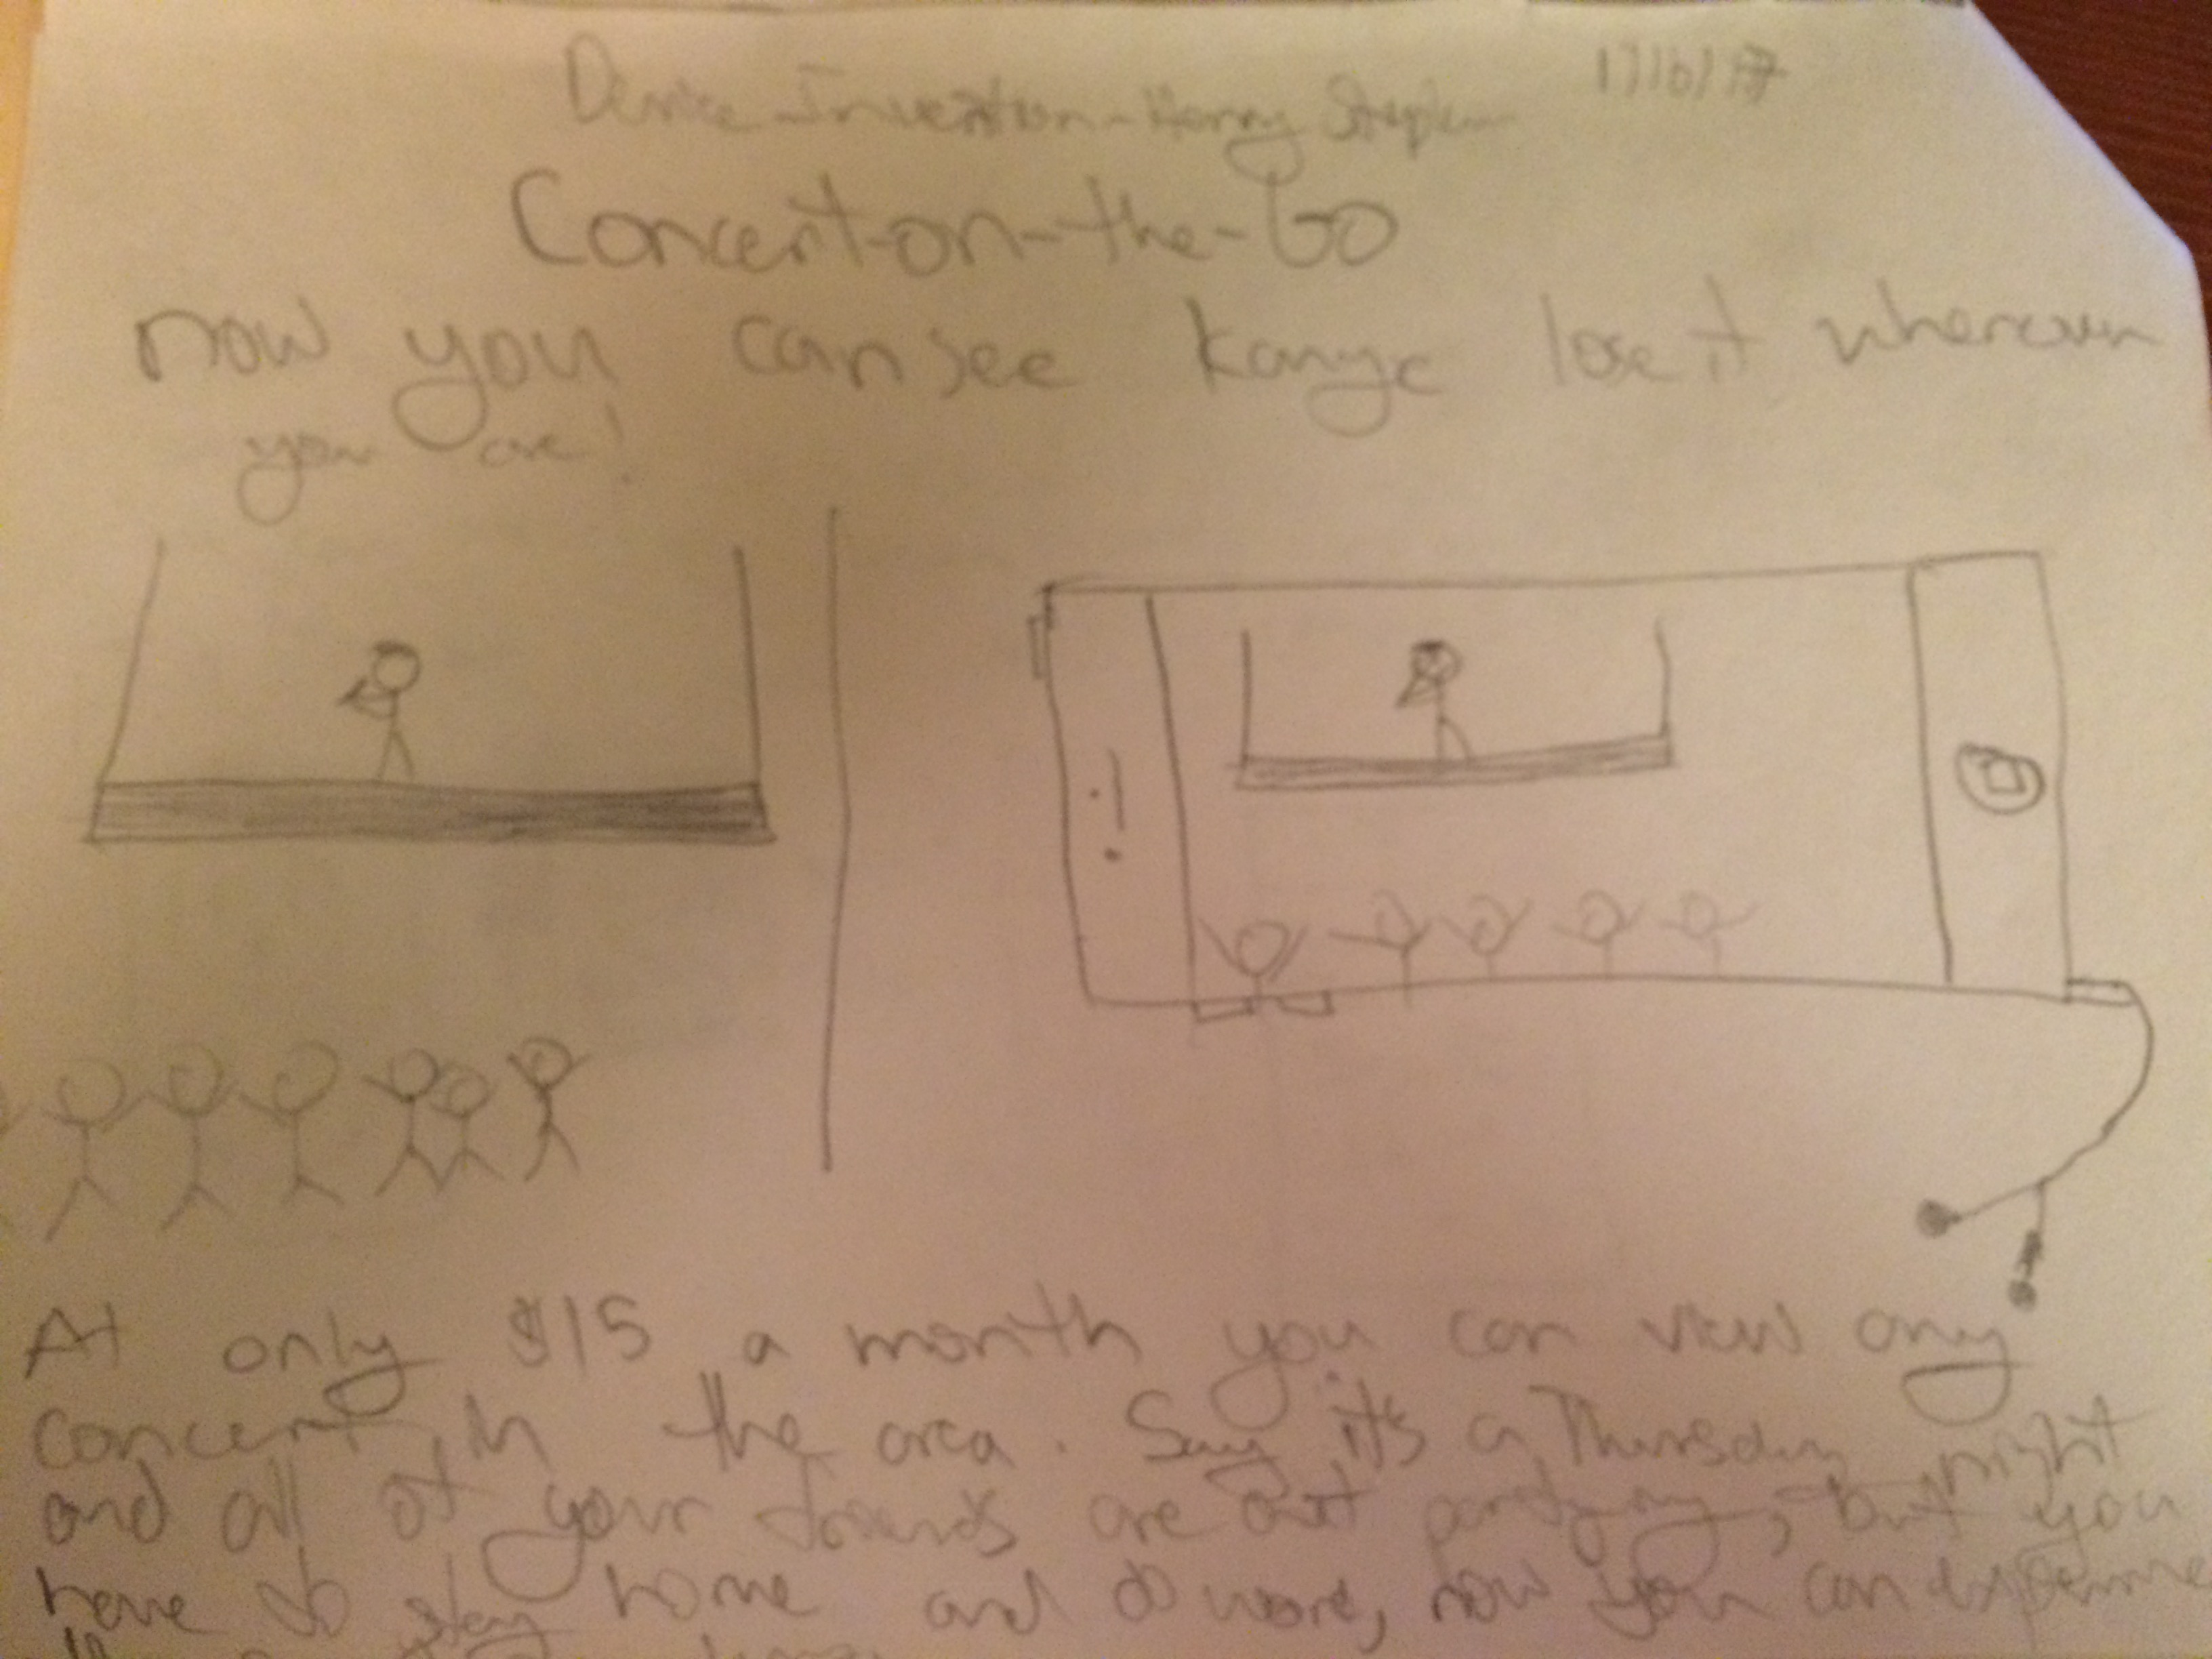 Device Invention - Henry
Concert-on-the-Go
now you can see Kanye lose it wherever
you are!
At only $15 a month you can view any
concert in the area. Say it's a Thursday night
and all of your friends are out partying, but you
have to stay home and do work, now you can experience